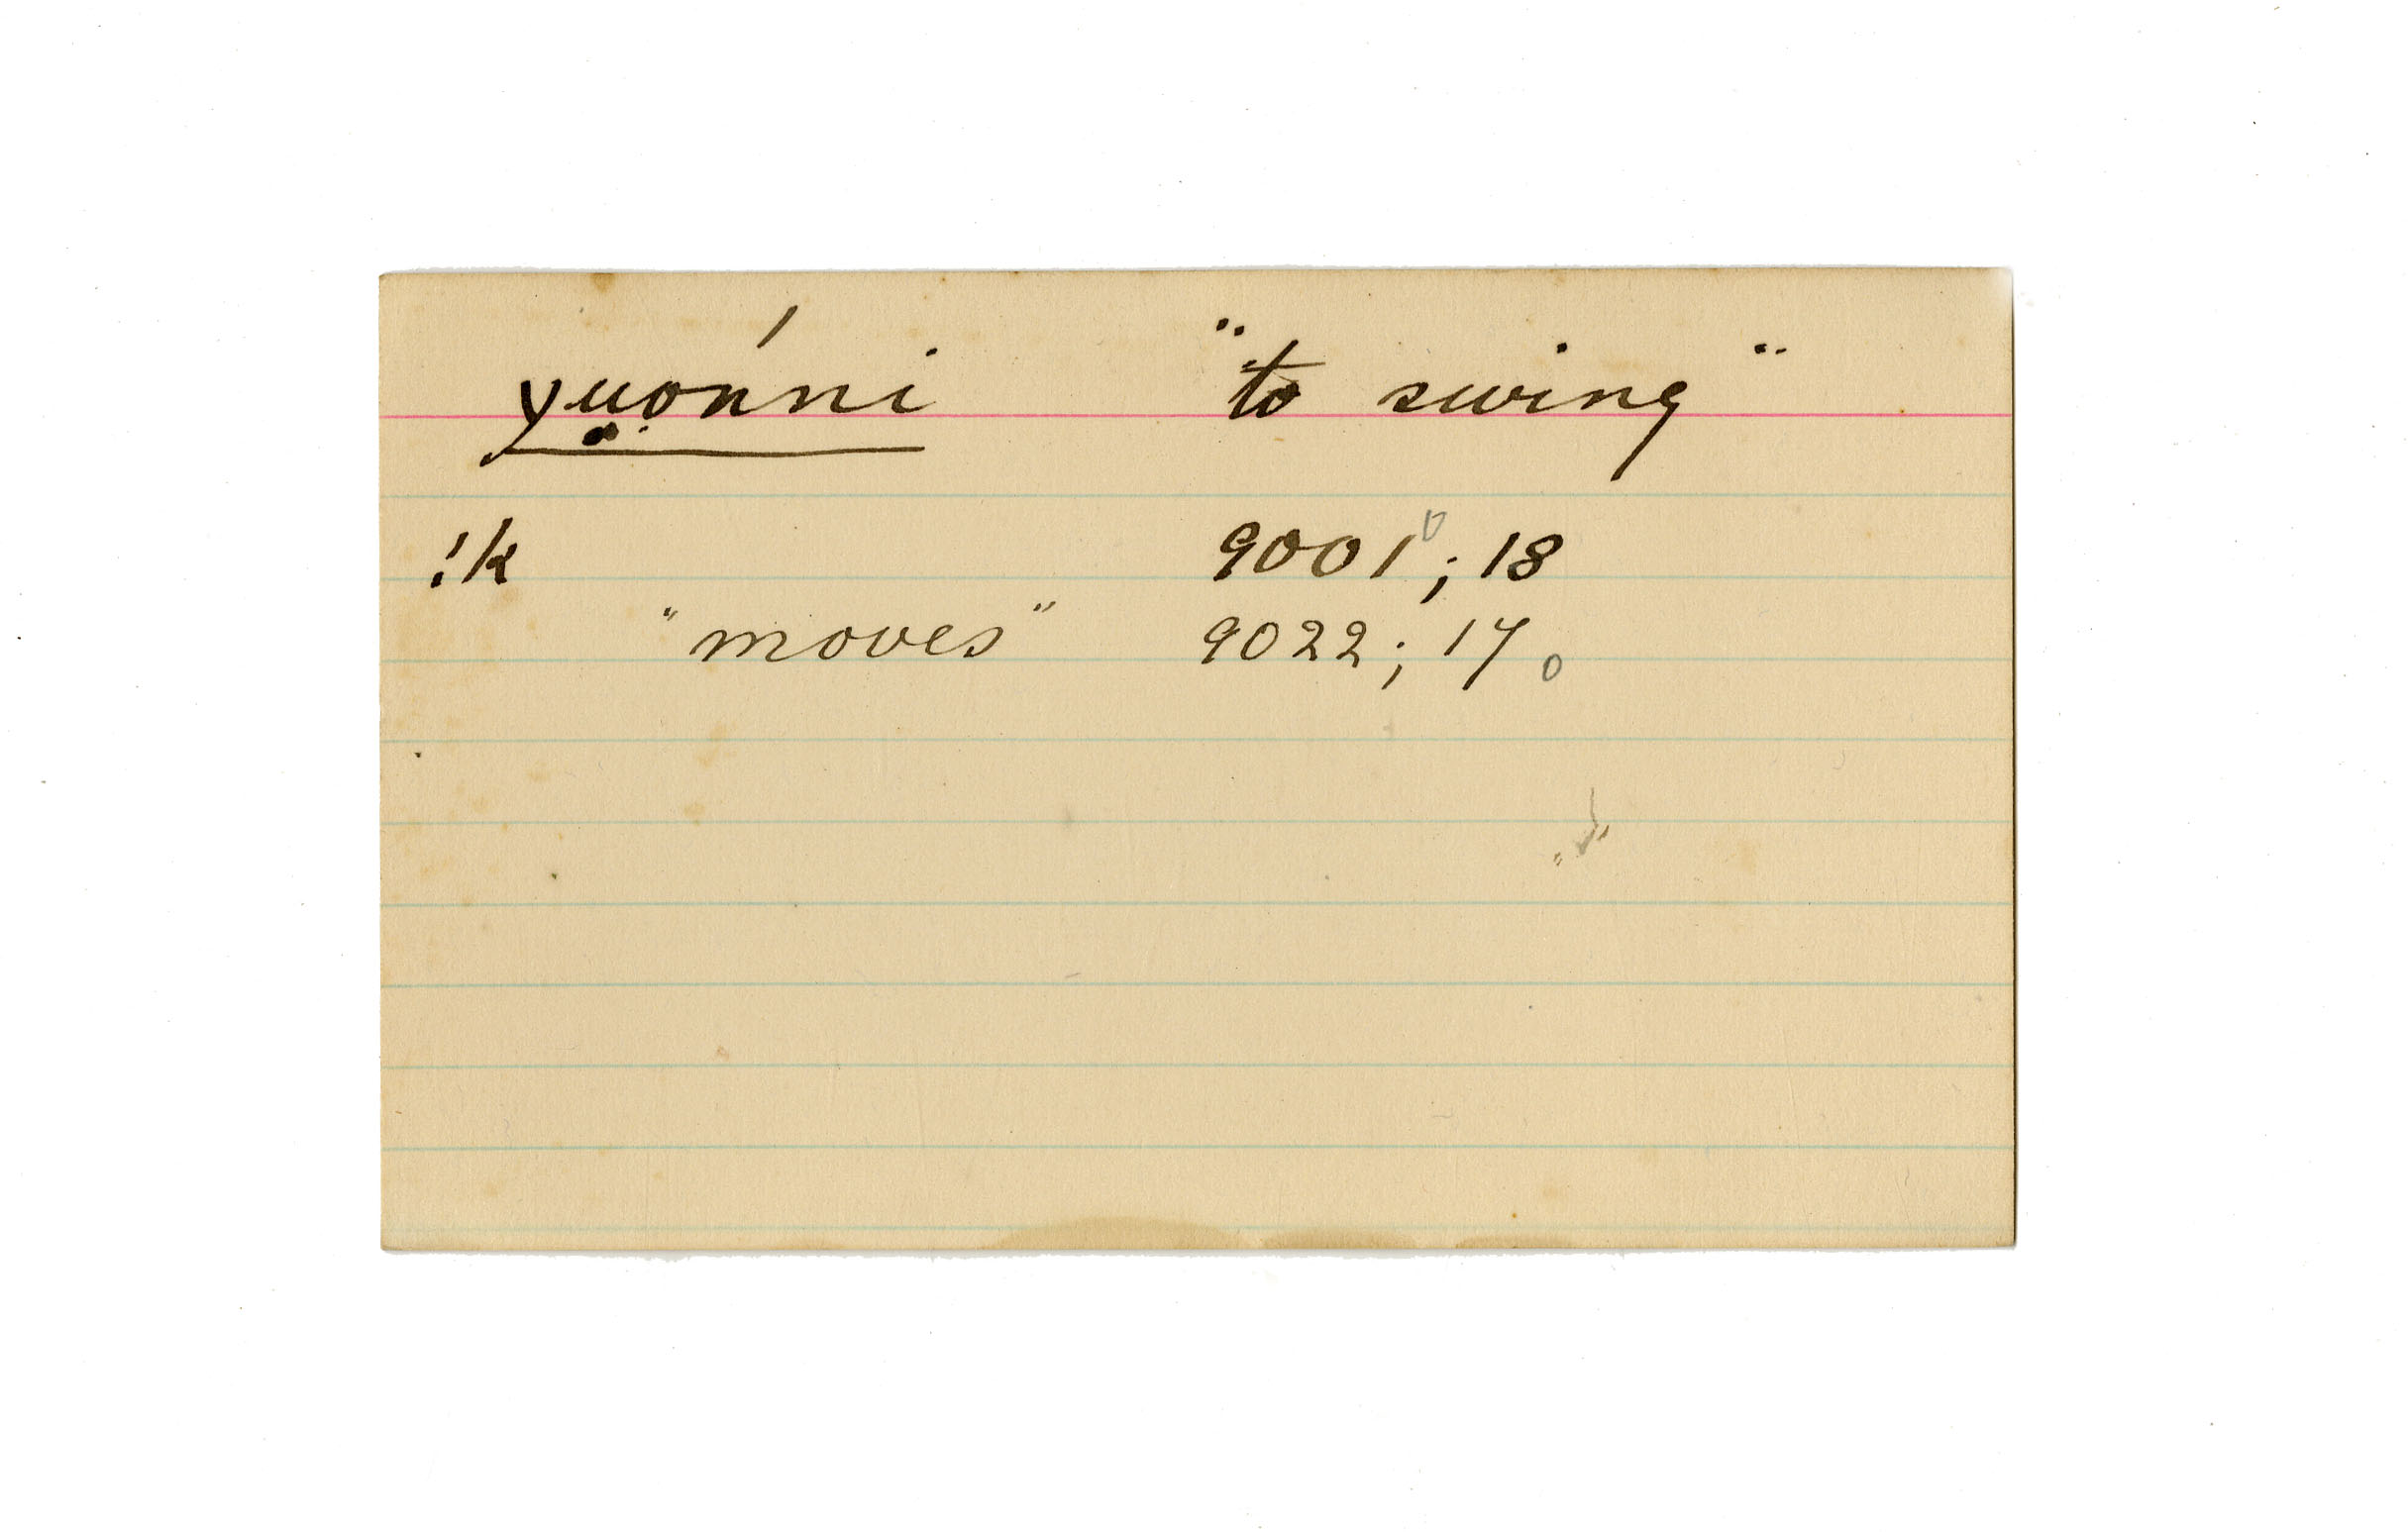 yụọńni "to swing"
!k 9001⁰; 18
"moves" 9022; 17 o